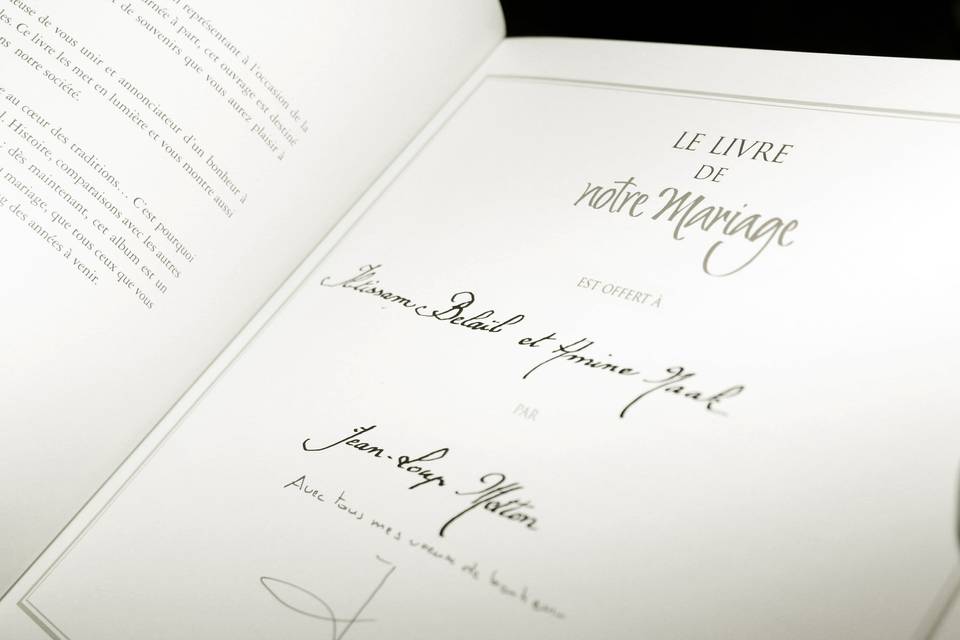 représentant à l'occasion de la
rnée à part, cet ouvrage est destiné
t de souvenirs que vous aurez plaisir à
euse de vous unir et annonciateur d'un bonheur à
les. Ce livre les met en lumière et vous montre aussi
ns notre société.
e au cœur des traditions... C'est pourquoi
l. Histoire, comparaisons avec les autres
: dès maintenant, cet album est un
u mariage, que tous ceux que vous
g des années à venir.
LE LIVRE
DE
notre Mariage
EST OFFERT À
Belail et Amine Naak
PAR
Jean-Loup Motton
Avec tous mes voeux de bonheur